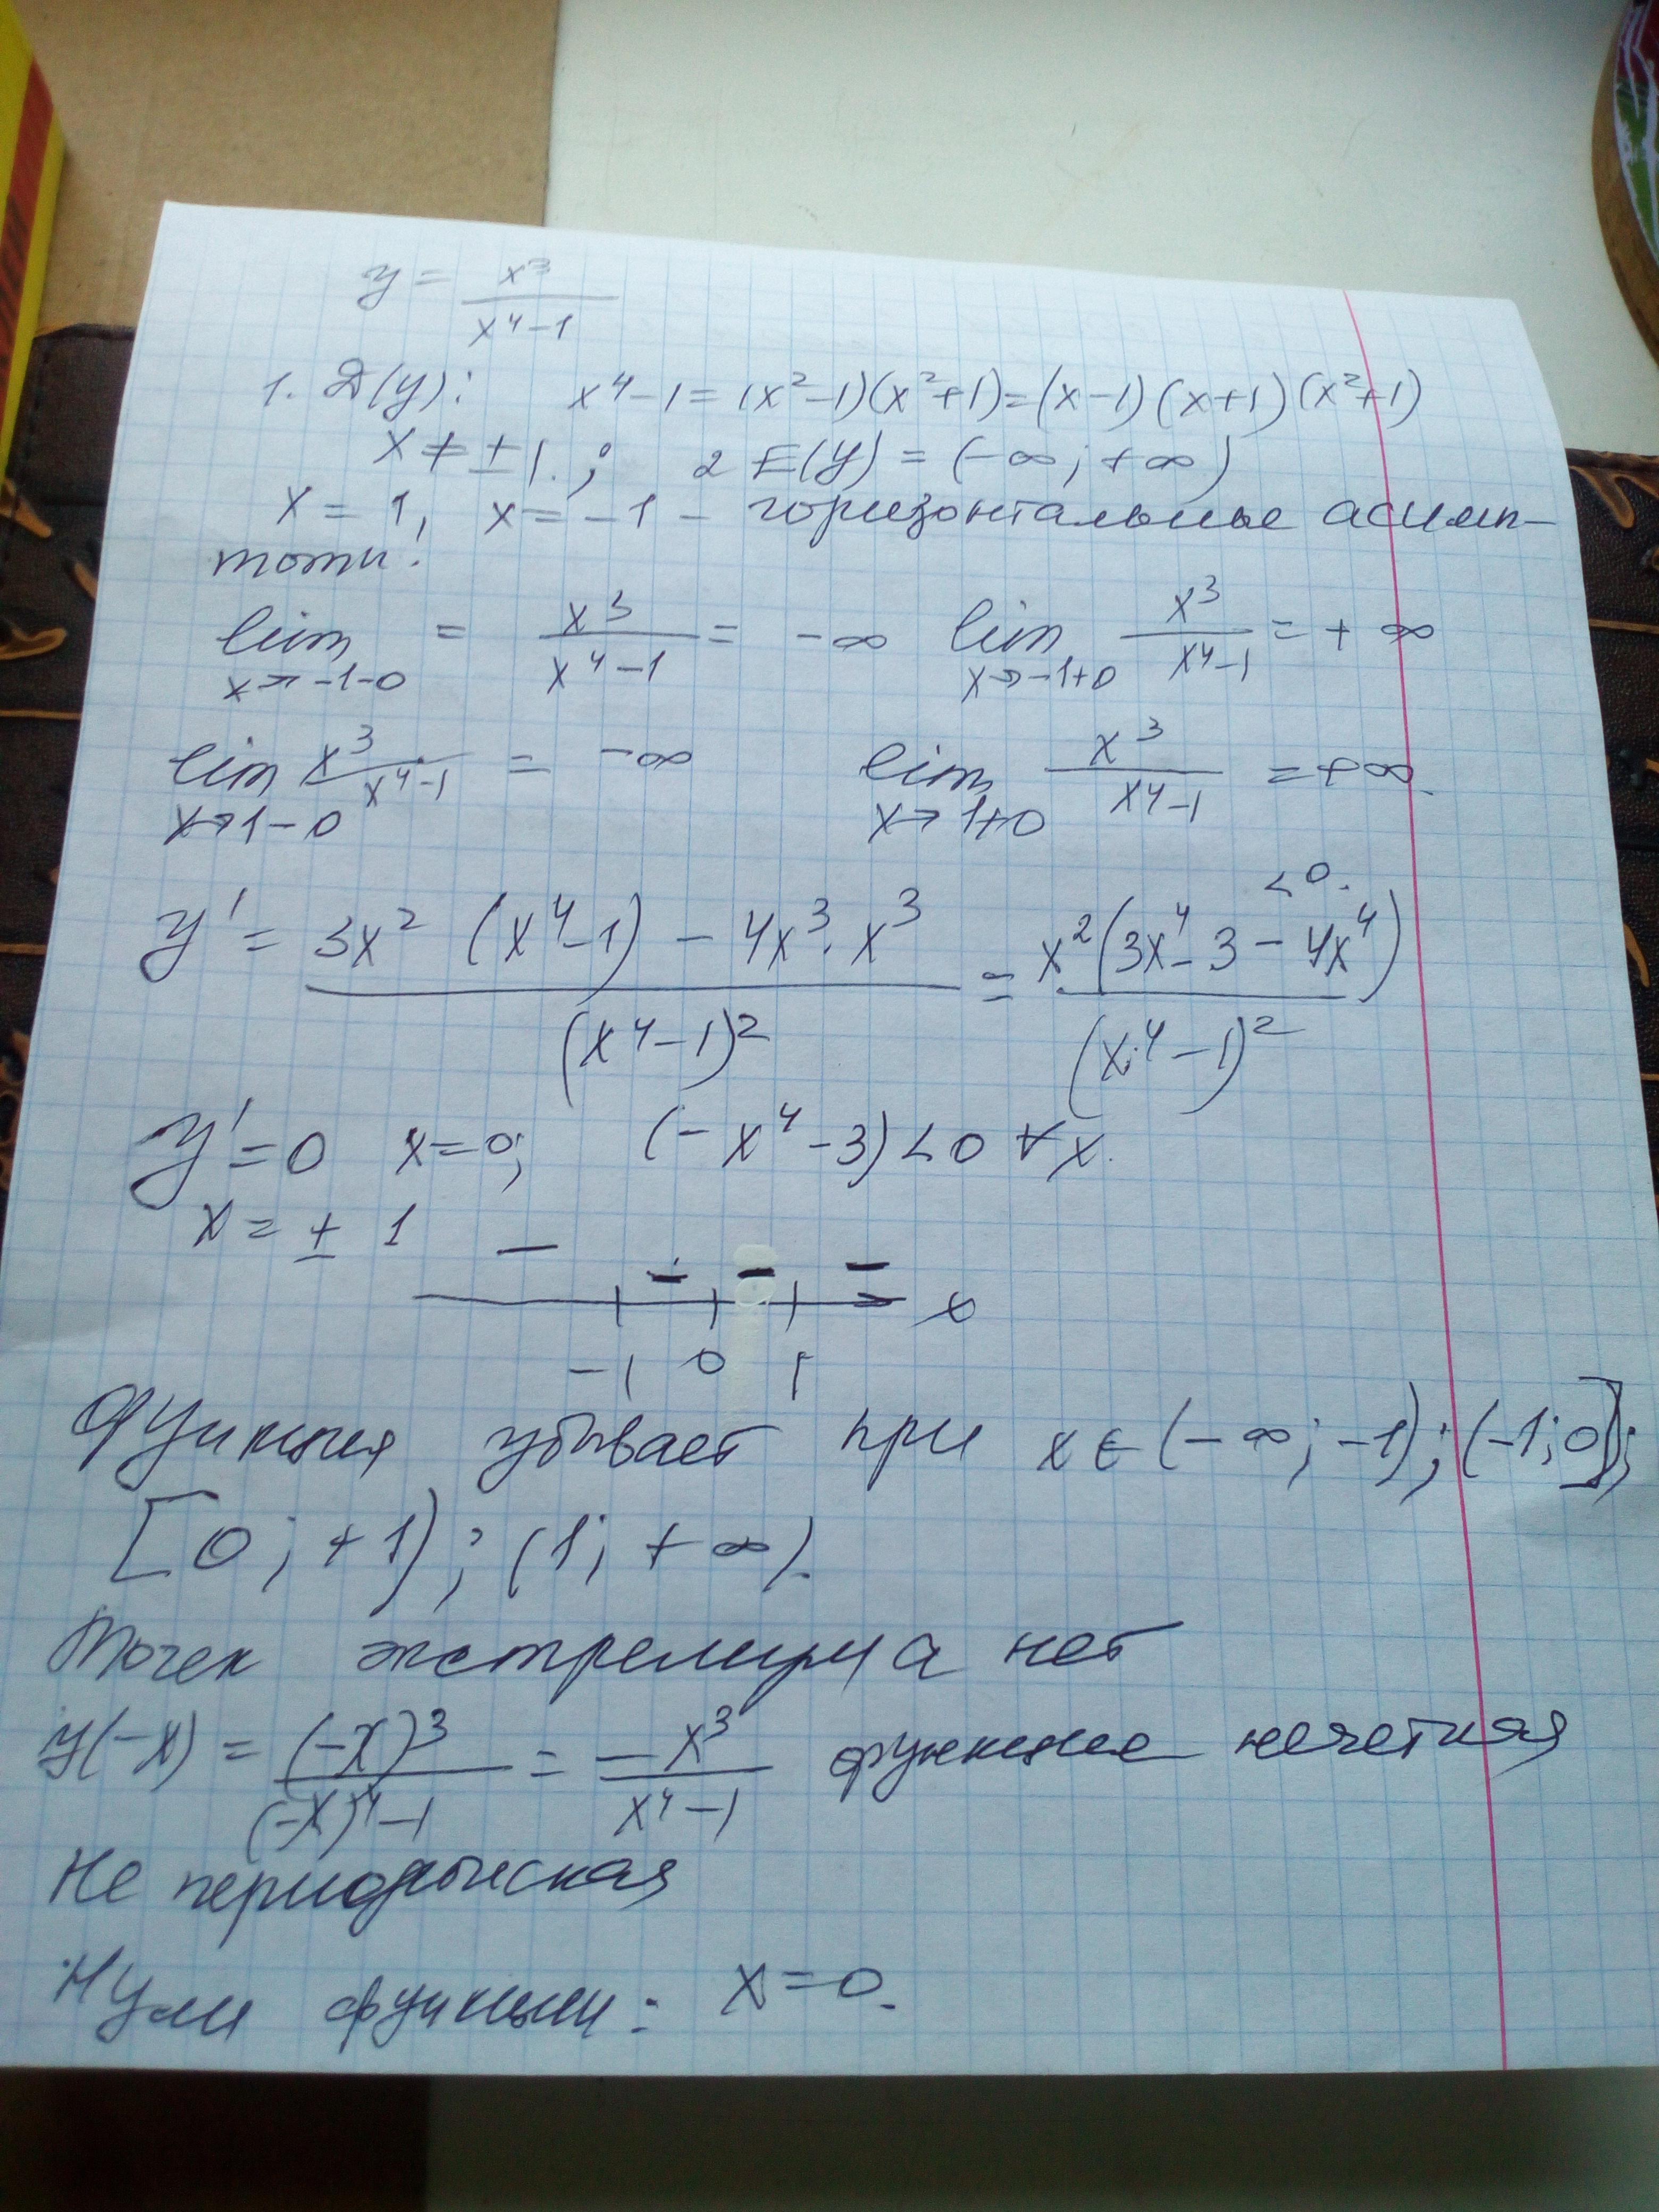 y = x³/(x⁴-1)
1. D(y): x⁴-1 = (x²-1)(x²+1) = (x-1)(x+1)(x²+1)
x ≠ ±1.; 2 E(y) = (-∞; +∞)
x = 1, x = -1 - горизонтальные асимп-
тоты!
lim x→-1-0 = x³/(x⁴-1) = -∞ lim x→-1+0 x³/(x⁴-1) = +∞
lim x→1-0 x³/(x⁴-1) = -∞ lim x→1+0 x³/(x⁴-1) = +∞.
<0.
y' = (3x²(x⁴-1) - 4x³·x³)/(x⁴-1)² = x²(3x⁴-3-4x⁴)/(x⁴-1)²
y' = 0 x=0; (-x⁴-3)<0 ∀x.
x = ± 1
− − − −
x
-1 0 1
Функция убывает при x ∈ (-∞; -1); (-1; 0];
[0; +1); (1; +∞).
Точек экстремума нет
y(-x) = (-x)³/((-x)⁴-1) = -x³/(x⁴-1) функция нечетная
Не периодическая
Нули функции: x=0.